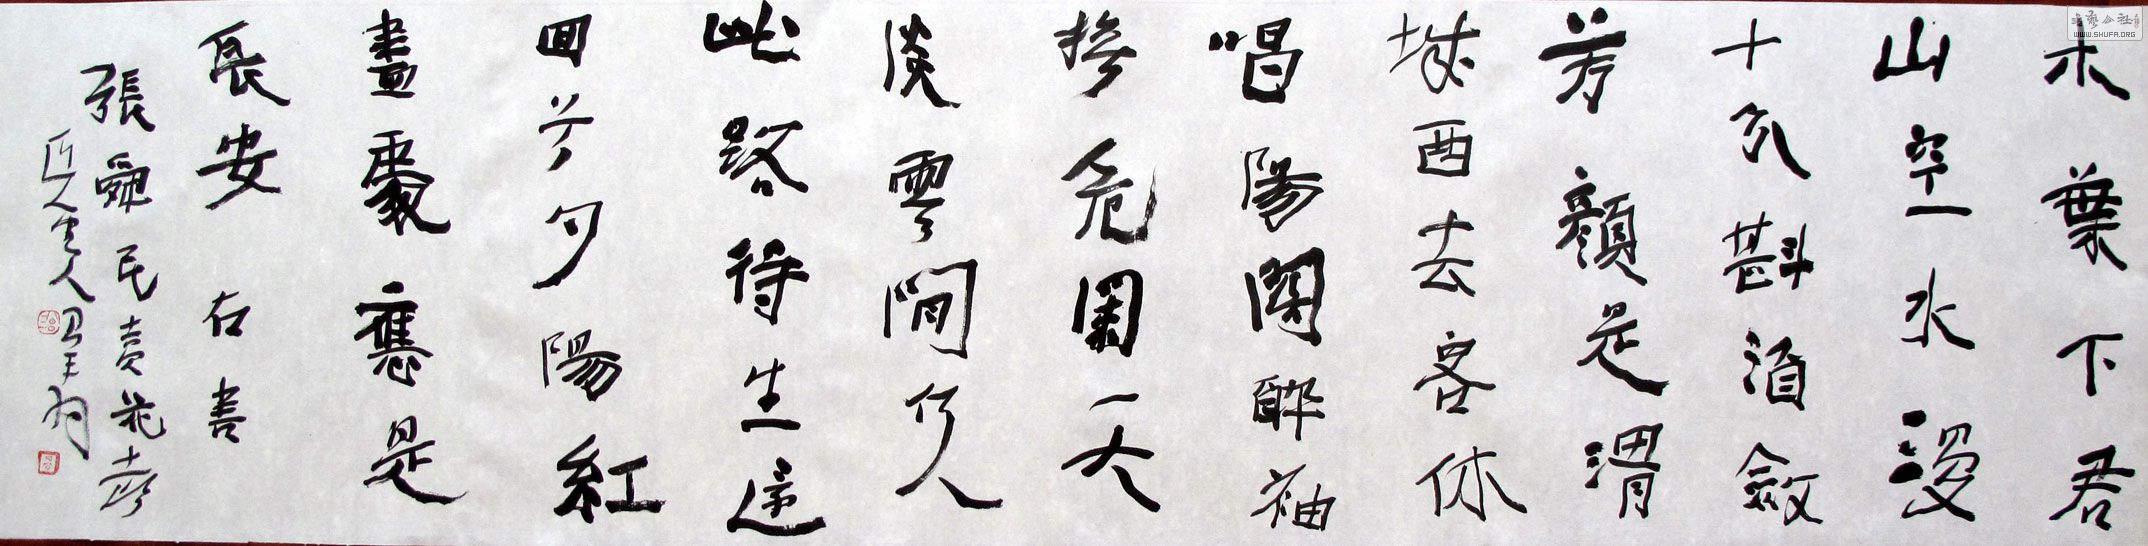 木葉下君
山空水漫
十分斟酒斂
芳顏是渭
城西去客休
唱陽關醉袖
撫危闌天
淡雲閒何人
此路得生還
回首夕陽紅
盡處應是
長安 右書
張舜民賣花聲
书艺公社
WWW.SHUFA.ORG